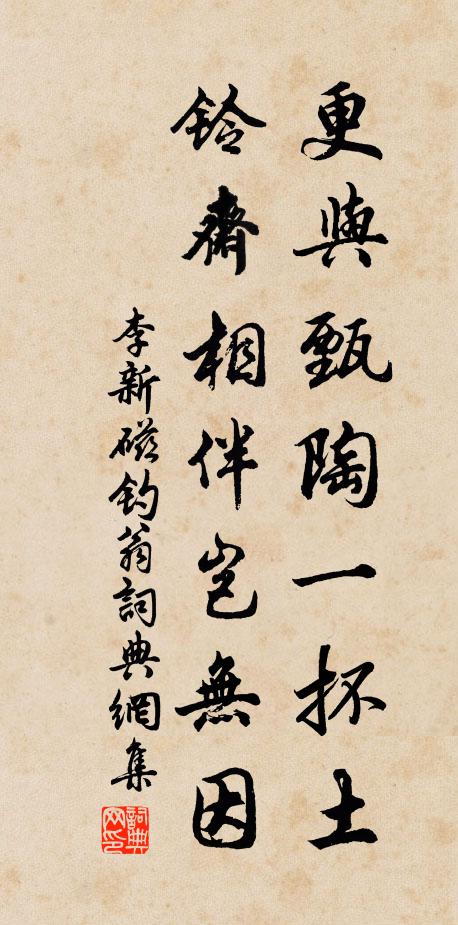 更與甄陶一抔土
鈴齋相伴豈無因
李新磁鈞翁詞典網集
詞典網印